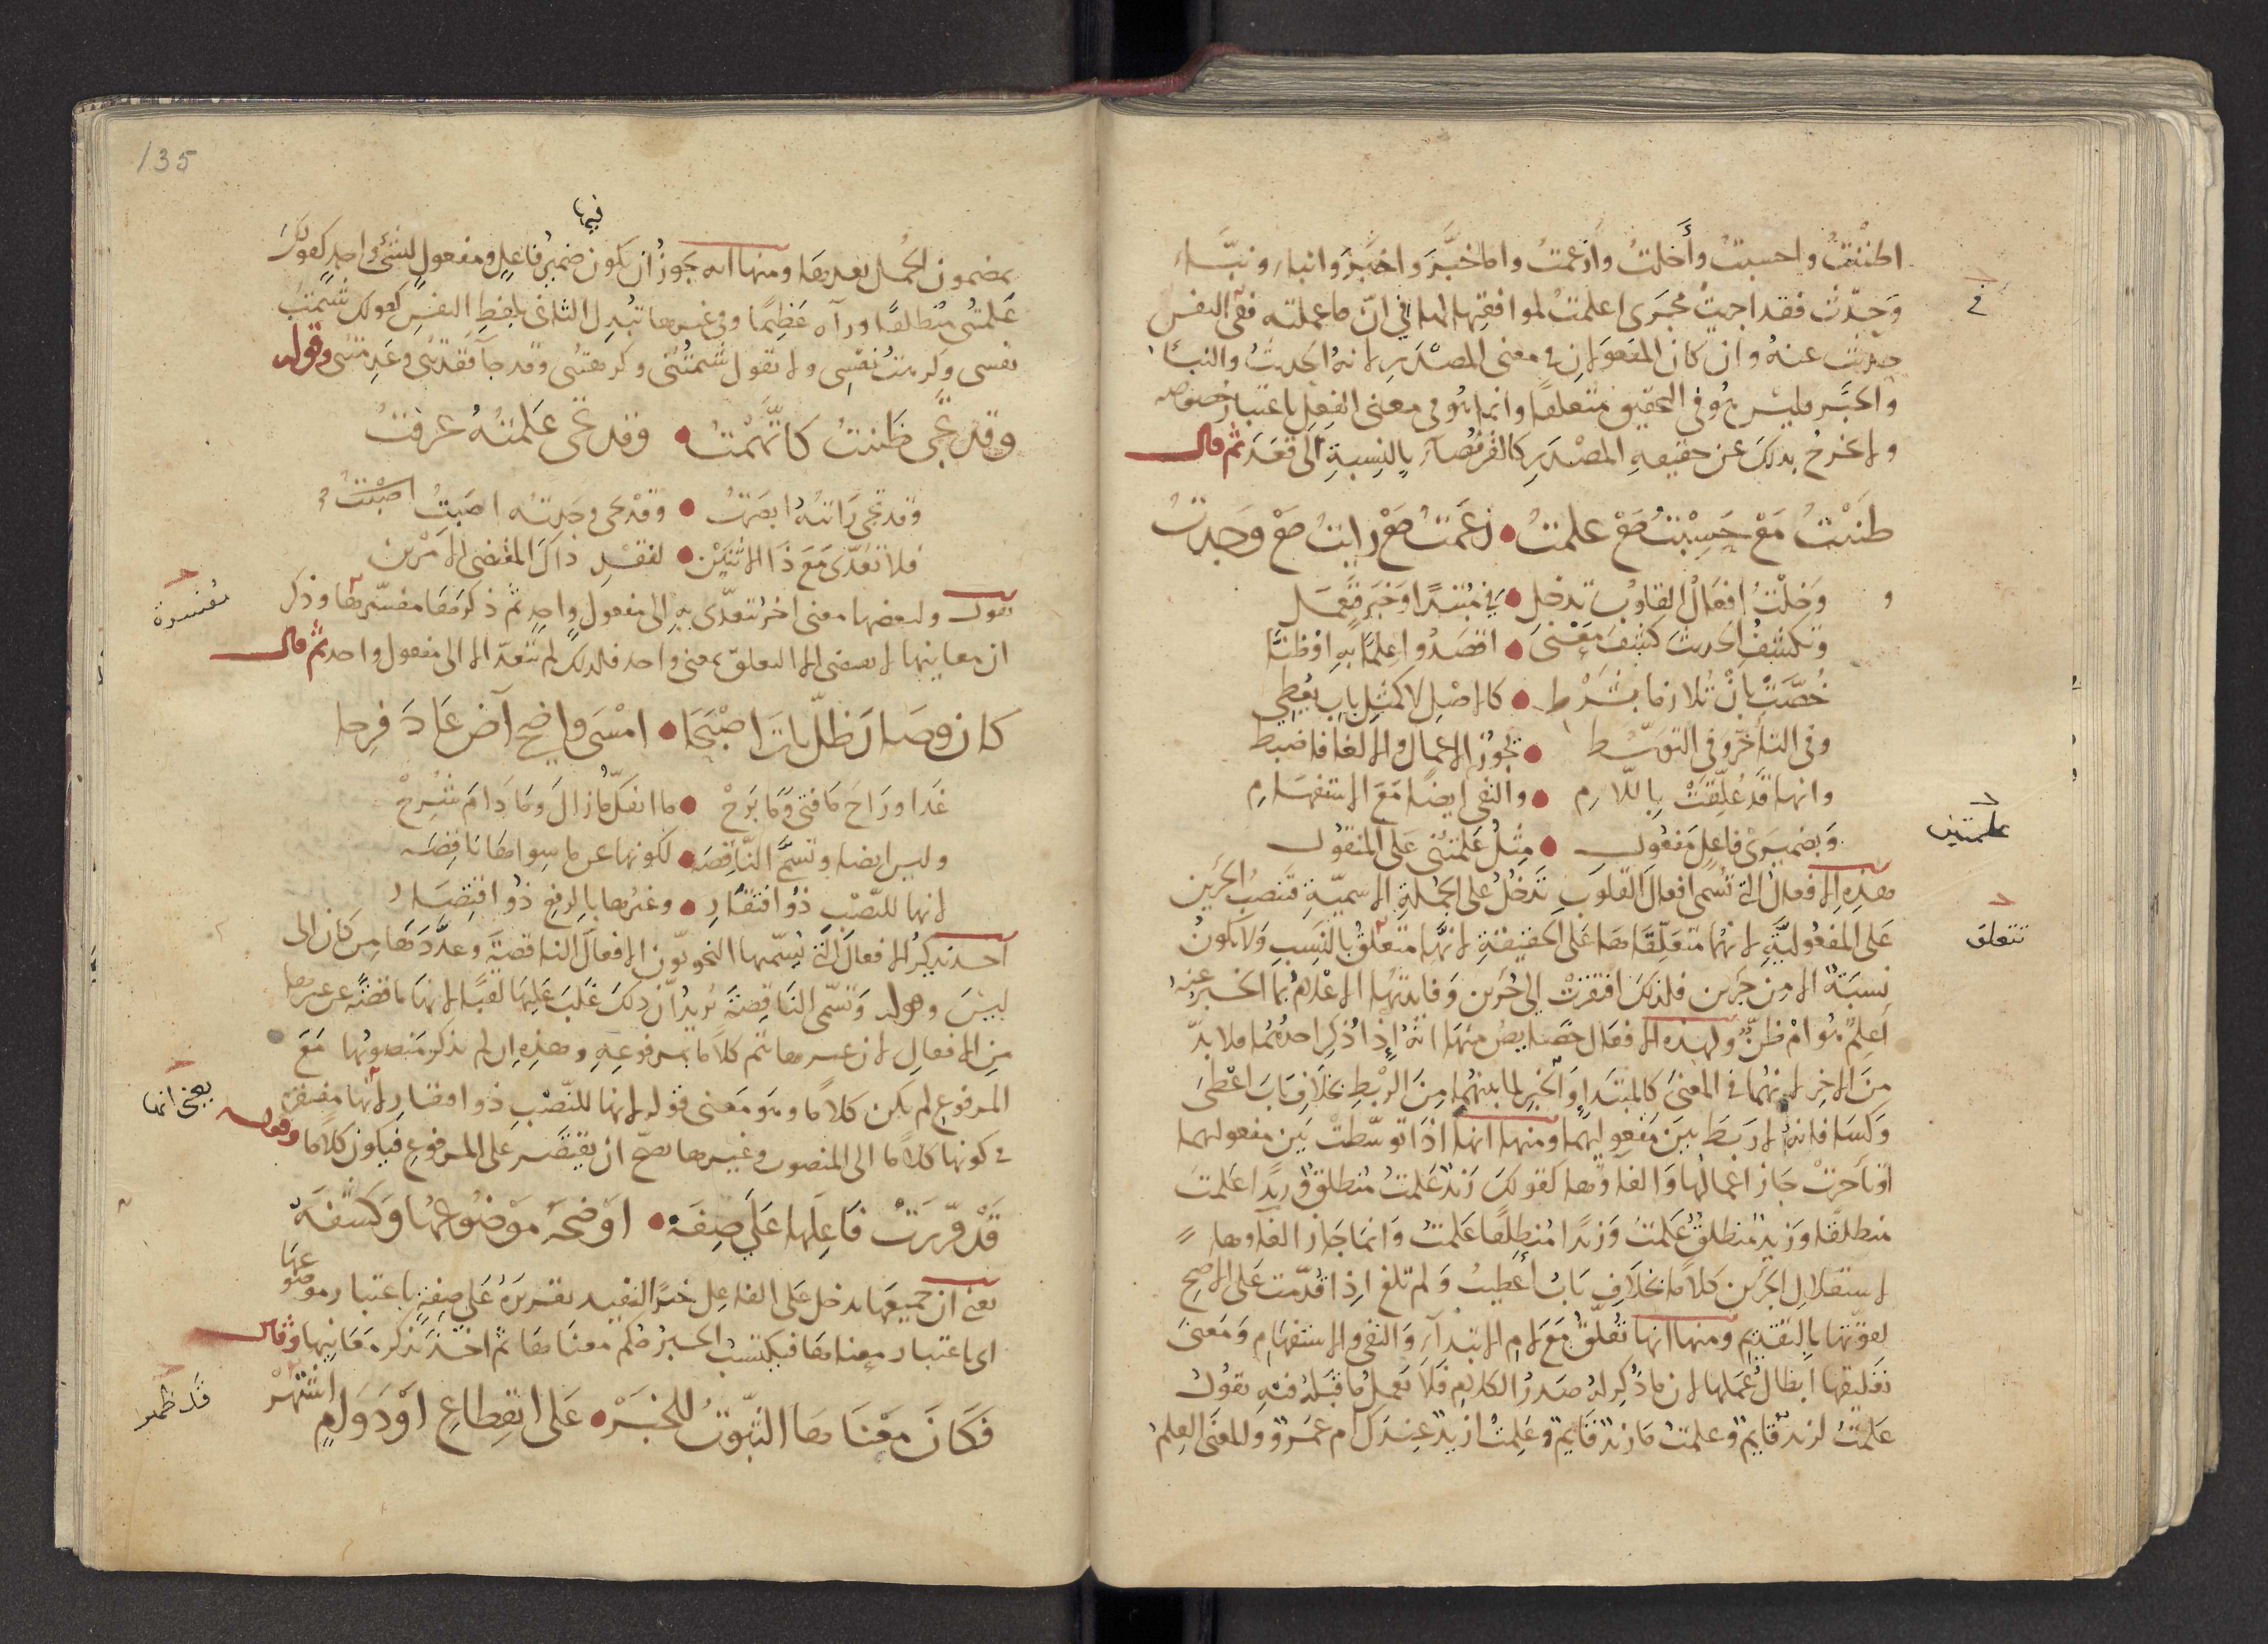 اظننت واحسبت وأخلت وأزعمت واما خبَّر واخبر وانباء ونبَّاء
وحدّث فقد اجريت مجرى اعلمت لموافقتها لها في انّ ما عملته فى النفس
حدّث عنه وان كان المفعولان في معنى المصدر لانه الحديث والنباء
والخبر فليس هو فى التحقيق متعلقا وانما هو فى معنى الفعل باعتبار خصوصه
ولا يخرج بذلك عن حقيقه المصدر كالقرفصاء بالنسبة الى قعد ثم قال
ظننت مع حسبت مع علمت • زعمت مع رايت مع وجدت
وخلت افعال القلوب تدخل • في مبتدا وخبر فتعمل
وتكشف الحديث كشف معنى • اقصدوا علما به او ظنّا
خُصّت بان تلازما بشرط • كالاصل لا كمثل باب يعطي
وفى التأخّر وفى التوسّط • تجوز الاعمال والالغا فاضبط
وانها قد عُلّقت باللام • والنفى ايضا مع الاستفهام
وبضميرى فاعل مفعول • مثل علمتنى على المنقول
هذه الافعال التي تسمى افعال القلوب تدخل على الجملة الاسمية فتنصب الجزين
على المفعولية لانهما متعلقاها على الحقيقة لانها متعلق بالنسب ولا يكون
نسبة الا من جزين فلذلك افتقرت الى جزين وفائدتها الاعلام بما الخبر عنه
اعلم هو ام ظنّ ولهذه الافعال خصايص منها انه اذا ذكر احدهما فلا بدّ
من الاخر لانهما في المعنى كالمبتدا والخبر لما بينهما من الربط بخلاف باب اعطى
وكسا فانه لا ربط بين مفعوليهما ومنها انها اذا توسّطت بين مفعوليهما
او تأخرت جاز اعمالها والغاؤها كقولك زيد علمت منطلق وزيدا علمت
منطلقا وزيد منطلق علمت وزيدا منطلقا علمت وانما جاز الغاوها
لاستقلال الجزين كلاما بخلاف باب أعطيت ولم تلغ اذا قدّمت على الاصح
لقوّتها بالتقديم ومنها انها تعلّق مع لام الابتداء والنفى والاستفهام ومعنى
تعليقها ابطال عملها لان ما ذكر له صدر الكلام فلا يعمل ما قبله فيه تقول
علمت لزيد قايم وعلمت ما زيد قايم وعلمت ازيد عندك ام عمرو والمعنى العلم
في
علمتنى
تتعلق
135
فيها
بمضمون الجمل بعدها ومنها انه يجوز ان يكون ضمير فاعل ومفعول لشئ واحد كقولك
علمتنى منطلقا ورآه عظيما وفى غيرها تبدل الثانى بلفظ النفس كقولك شتمت
نفسى وكرهت نفسى ولا تقول شتمتنى وكرهتنى وقد جآ فقدتنى وعدمتنى وقوله
وقد تجى ظننت كاتّهمت • وقد تجى علمته عرفت
وقد تجى رايته ابصرت • وقد تجى وجدته اصبت
فلا تعدّى مع ذا الاثنين • لفقد ذاك المقتضى الامرين
تقول ولبعضها معنى اخر تتعدّى به الى مفعول واحد ثم ذكرها مفسّرها وذكر
ان معانيها لا يقتضى الا التعلق بمعنى واحد فلذلك لم تتعدّ الا الى مفعول واحد ثم قال
كان وصار ظلّ بات اصبحا • امسى واضحى آض عاد فرحا
غدا وراح ما فتى وما برح • ما انفك ما زال وما دام شرح
وليس ايضا وتسمّى الناقصه • لكونها عن ما سواها ناقصه
لانها للنّصب ذو افتقار • وغيرها بالرفع ذو اقتصار
اخذ يذكر الافعال التي يسمّيها النحويّون الافعال الناقصة وعدّدها من كان الى
ليس وقوله وتسمّى الناقصة يريد ان ذلك غلب عليها لقبا لانها ناقصة عن غيرها
من الافعال لان غيرها تتم كلاما بمرفوعه وهذه ان لم تذكر منصوبها مع
المرفوع لم يكن كلاما وهو معنى قوله لانها للنّصب ذو افتقار لانها مفتقرة
في كونها كلاما الى المنصوب وغيرها يصح ان يقتصر على المرفوع فيكون كلاما وقوله
قد قرّرت فاعلها على صفه • اوضحه موضوعها وكشفه
يعنى ان جميعها يدخل على الفاعل خبرا لتفيد تقريره على صفة باعتبار موضوعها
اى باعتبار معناها فيكتسب الخبر حكم معناها ثم اخذ يذكر معانيها وقال
فكان معناها الثبوت للخبر • على انقطاع او دوام اشتهر
مفسرة
يعنى انها